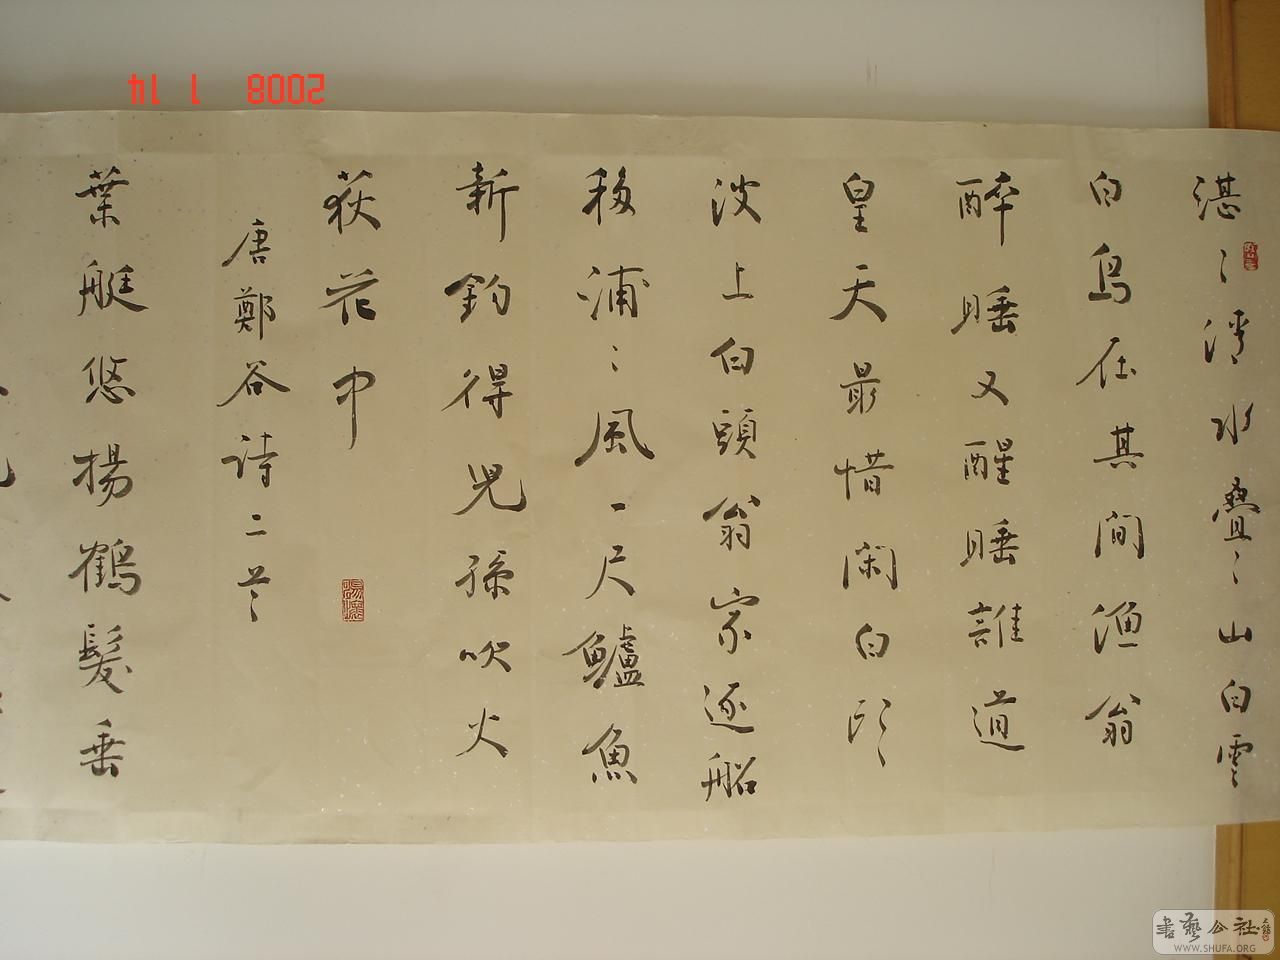 湛〻清水疊〻山白雲
白鳥在其間漁翁
醉睡又醒睡誰道
皇天最惜閑白頭
波上白頭翁家逐船
移浦〻風一尺鱸魚
新釣得兒孫吹火
荻花中
唐鄭谷詩二首
葉艇悠揚鶴髮垂
2008 1 14
書藝公社
WWW.SHUFA.ORG